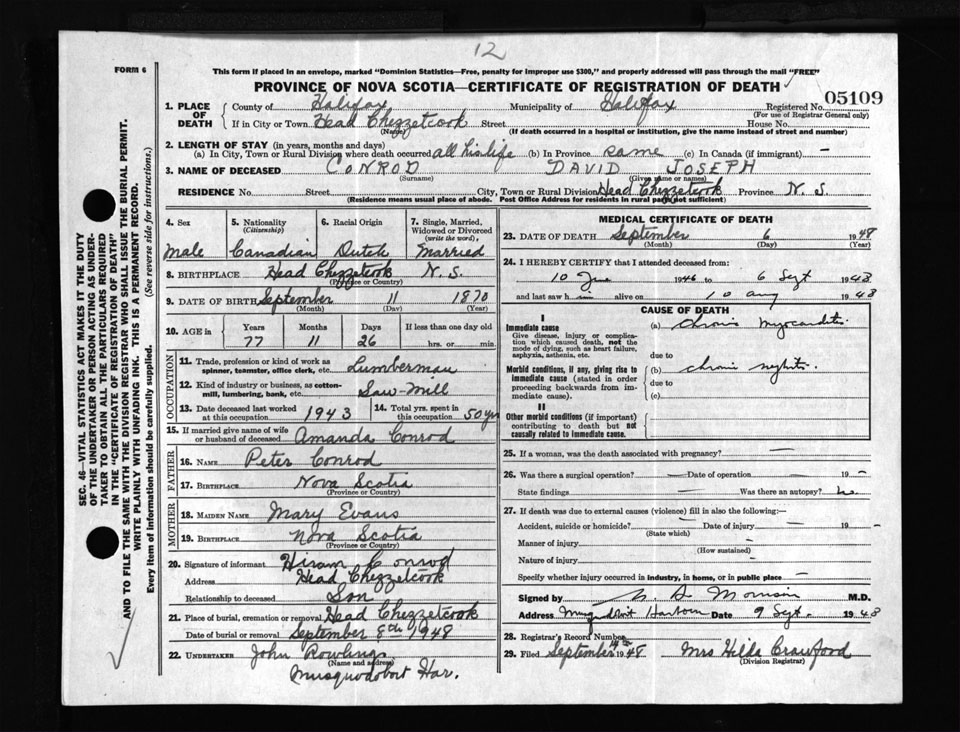 12
FORM 6
This form if placed in an envelope, marked "Dominion Statistics—Free, penalty for improper use $300," and properly addressed will pass through the mail "FREE"
PROVINCE OF NOVA SCOTIA—CERTIFICATE OF REGISTRATION OF DEATH
05109
1. PLACE OF DEATH County of Halifax Municipality of Halifax Registered No.
(For use of Registrar General only)
If in City or Town Head Chezzetcook Street House No.
(Name) (If death occurred in a hospital or institution, give the name instead of street and number)
2. LENGTH OF STAY (in years, months and days)
(a) In City, Town or Rural Division where death occurred all his life (b) In Province same (c) In Canada (if immigrant) —
3. NAME OF DECEASED CONROD DAVID JOSEPH
(Surname) (Given name or names)
RESIDENCE No. Street City, Town or Rural Division Head Chezzetcook Province N. S.
(Residence means usual place of abode. Post Office Address for residents in rural parts not sufficient)
4. Sex 5. Nationality 6. Racial Origin 7. Single, Married, Widowed or Divorced
(Citizenship) (write the word),
Male Canadian Dutch Married
8. BIRTHPLACE Head Chezzetcook N. S.
(Province or Country)
9. DATE OF BIRTH September 11 1870
(Month) (Day) (Year)
10. AGE in Years Months Days If less than one day old
77 11 26 hrs. or min.
OCCUPATION
11. Trade, profession or kind of work as spinner, teamster, office clerk, etc. Lumberman
12. Kind of industry or business, as cotton-mill, lumbering, bank, etc. Saw-Mill
13. Date deceased last worked at this occupation 1943 14. Total yrs. spent in this occupation 50 yrs
15. If married give name of wife or husband of deceased Amanda Conrod
FATHER
16. NAME Peter Conrod
17. BIRTHPLACE Nova Scotia
(Province or Country)
MOTHER
18. MAIDEN NAME Mary Evans
19. BIRTHPLACE Nova Scotia
(Province or Country)
20. Signature of informant Hiram Conrod
Address Head Chezzetcook
Relationship to deceased Son
21. Place of burial, cremation or removal Head Chezzetcook
Date of burial or removal September 8th 1948
22. UNDERTAKER John Rowlings
(Name and address)
Musquodoboit Har.
MEDICAL CERTIFICATE OF DEATH
23. DATE OF DEATH September 6 1948
(Month) (Day) (Year)
24. I HEREBY CERTIFY that I attended deceased from:
10 1946 to 6 Sept 1948
and last saw him alive on 10 Aug 1948
CAUSE OF DEATH
I
Immediate cause (a) Chronic myocarditis.
Give disease, injury or complication which caused death, not the mode of dying, such as heart failure, asphyxia, asthenia, etc.
due to
Morbid conditions, if any, giving rise to immediate cause (stated in order proceeding backwards from immediate cause).
(b) chronic nephritis.
due to
(c)
II
Other morbid conditions (if important) contributing to death but not causally related to immediate cause.
25. If a woman, was the death associated with pregnancy? —
26. Was there a surgical operation? — Date of operation — 19 —
State findings — Was there an autopsy? no
27. If death was due to external causes (violence) fill in also the following:—
Accident, suicide or homicide? — Date of injury — 19 —
(State which)
Manner of injury —
(How sustained)
Nature of injury —
Specify whether injury occurred in industry, in home, or in public place —
Signed by Morrison M.D.
Address Musquodoboit Harbour Date 9 Sept. 1948
28. Registrar's Record Number
29. Filed September 14th 1948 Mrs Hilda Crawford
(Division Registrar)
SEC. 46—VITAL STATISTICS ACT MAKES IT THE DUTY
OF THE UNDERTAKER OR PERSON ACTING AS UNDER-
TAKER TO OBTAIN ALL THE PARTICULARS REQUIRED
IN THE "CERTIFICATE OF REGISTRATION OF DEATH"
AND TO FILE THE SAME WITH THE DIVISION REGISTRAR WHO SHALL ISSUE THE BURIAL PERMIT.
WRITE PLAINLY WITH UNFADING INK. THIS IS A PERMANENT RECORD.
Every item of information should be carefully supplied. (See reverse side for instructions.)